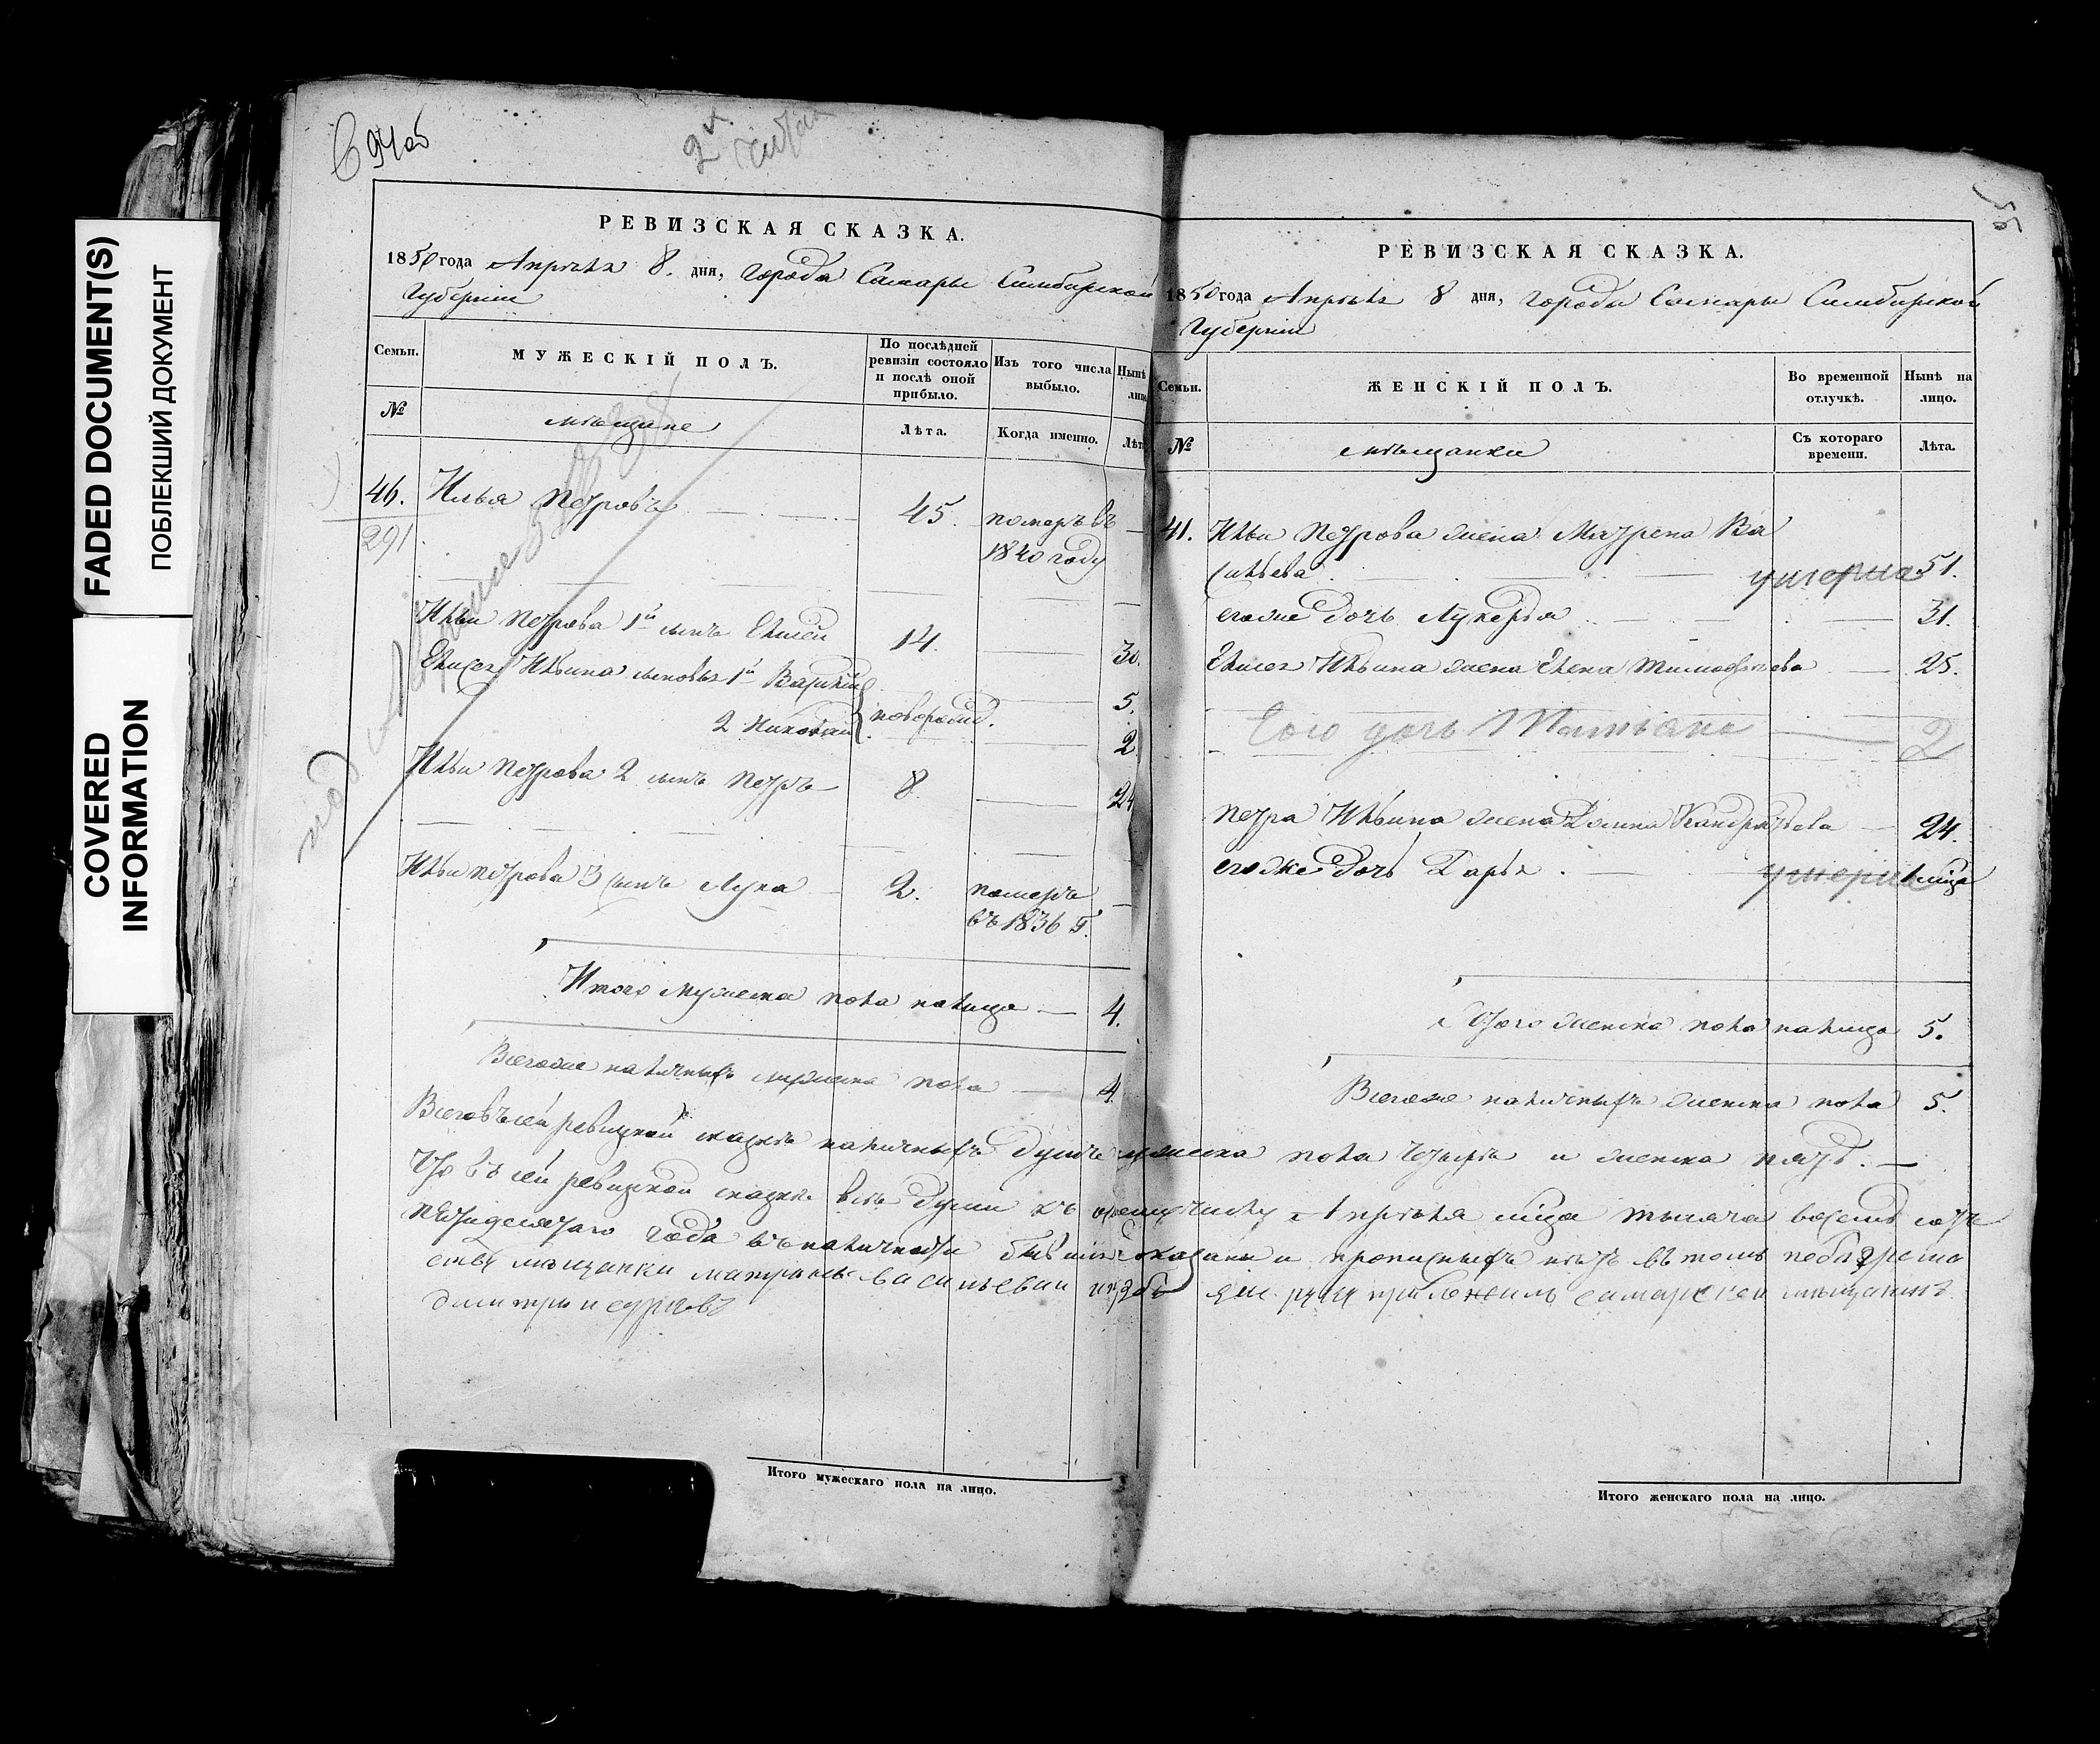 FADED DOCUMENT(S)
ПОБЛЕКШИЙ ДОКУМЕНТ
COVERED
INFORMATION
2й
РЕВИЗСКАЯ СКАЗКА.
1850 года Апрѣля 8. дня, города Самары Симбирской
Губерніи
Семьи.
МУЖЕСКІЙ ПОЛЪ.
По послѣдней
ревизіи состояло
и послѣ оной
прибыло.
Изъ того числа
выбыло.
Нынѣ
лицо
№
мѣщане
Лѣта.
Когда именно.
Лѣта
46.
291
Илья Петровъ
45.
померъ въ
1840 году
Ильи Петрова 1й сынъ Елисей
14.
30.
Елисея Ильина сыновья 1й Василій
5.
2 Николай
новорожд.
2
Ильи Петрова 2 сынъ Петръ
8.
24
Ильи Петрова 3 сынъ Лука
2.
померъ
въ 1836 г.
Итого мужеска пола налицо
4.
Всегоже наличныхъ мужеска пола
4.
55
РЕВИЗСКАЯ СКАЗКА.
1850 года Апрѣля 8 дня, города Самары Симбирской
Губерніи
Семьи.
ЖЕНСКІЙ ПОЛЪ.
Во временной
отлучкѣ.
Нынѣ на
лицо.
№
мѣщанки
Съ котораго
времени.
Лѣта.
41.
Ильи Петрова жена Матрена Ва
сильева
умерла
51.
егоже дочь Лукерья
31.
Елисея Ильина жена Елена Тимофѣева
25.
Его дочь Татьяна
2
Петра Ильина жена Домна Кандратьева
24.
егоже дочь Дарья
умерла
1 мѣся
Итого женска пола налицо
5.
Всегоже наличныхъ женска пола
5.
Всего въ сей ревизской сказкѣ наличныхъ душъ мужеска пола четыре и женска пять.
Что въ сей ревизской сказкѣ всѣ души къ числу Апрѣля мѣсяца тысяча восемь сотъ
пятидесятаго года въ наличности бывшіе показаны и прописныхъ нѣтъ въ томъ
мѣщанки матрены васильевой руку приложилъ самарской мѣщанинъ
дмитри
Итого мужескаго пола на лицо.
Итого женскаго пола на лицо.